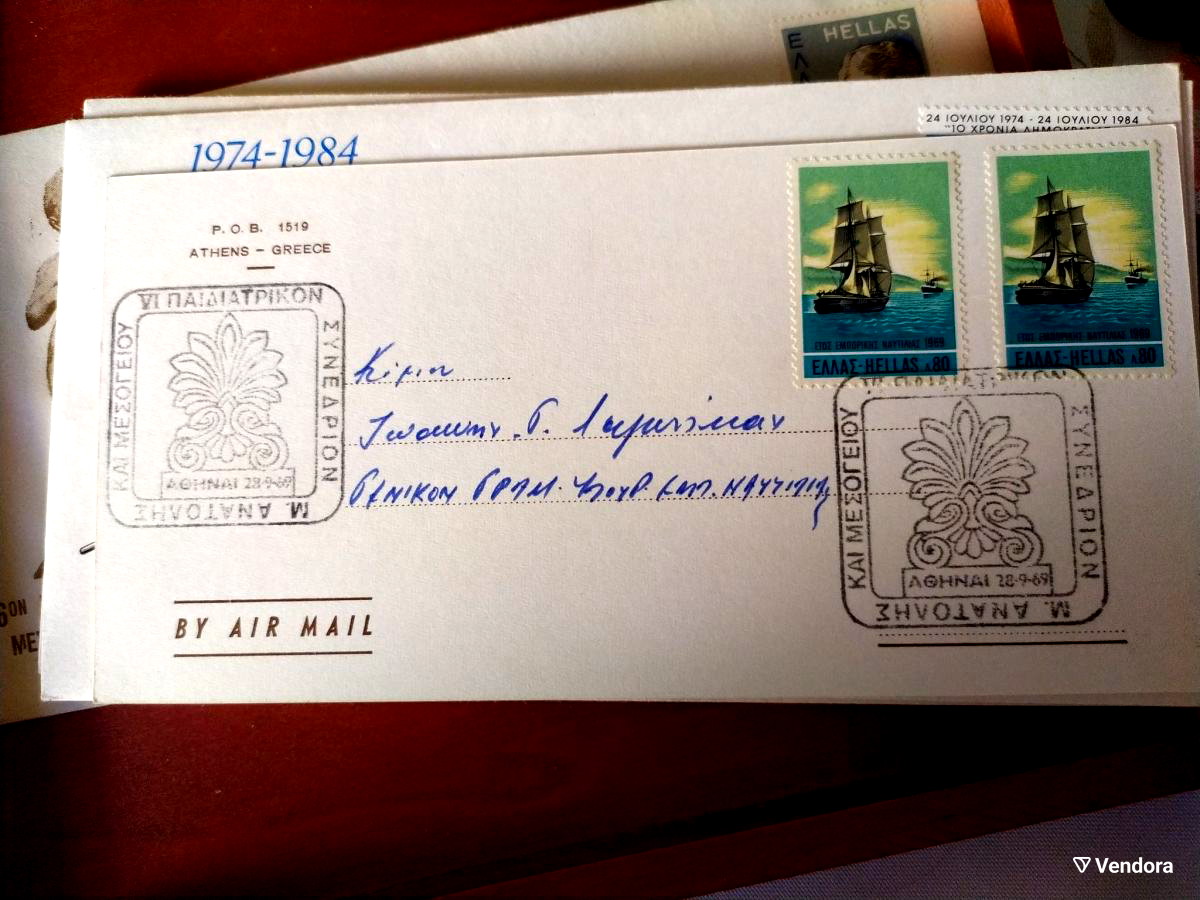 HELLAS
24 ΙΟΥΛΙΟΥ 1974 - 24 ΙΟΥΛΙΟΥ 1984
"10 ΧΡΟΝΙΑ ΔΗΜΟΚΡΑΤΙΑΣ
1974-1984
P. O. B. 1519
ATHENS - GREECE
VI ΠΑΙΔΙΑΤΡΙΚΟΝ
ΣΥΝΕΔΡΙΟΝ
Μ. ΑΝΑΤΟΛΗΣ
ΚΑΙ ΜΕΣΟΓΕΙΟΥ
ΑΘΗΝΑΙ 28-9-69
ΕΤΟΣ ΕΜΠΟΡΙΚΗΣ ΝΑΥΤΙΛΙΑΣ 1969
ΕΛΛΑΣ-HELLAS Λ80
ΕΤΟΣ ΕΜΠΟΡΙΚΗΣ ΝΑΥΤΙΛΙΑΣ 1969
ΕΛΛΑΣ-HELLAS Λ80
Κύριον
Ἰωάννην Γ.
ΓΕΝΙΚΟΝ ΓΡΑΜ. ΕΜΠ. ΝΑΥΤΙΛΙΑΣ
ΣΥΝΕΔΡΙΟΝ
Μ. ΑΝΑΤΟΛΗΣ
ΚΑΙ ΜΕΣΟΓΕΙΟΥ
ΑΘΗΝΑΙ 28-9-69
BY AIR MAIL
6ΟΝ
ΜΕ
Vendora